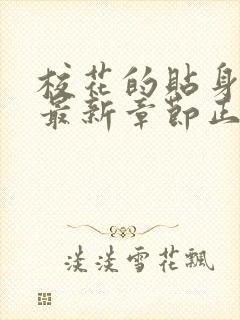 校花的貼身
最新章節正
淡淡雪花飄